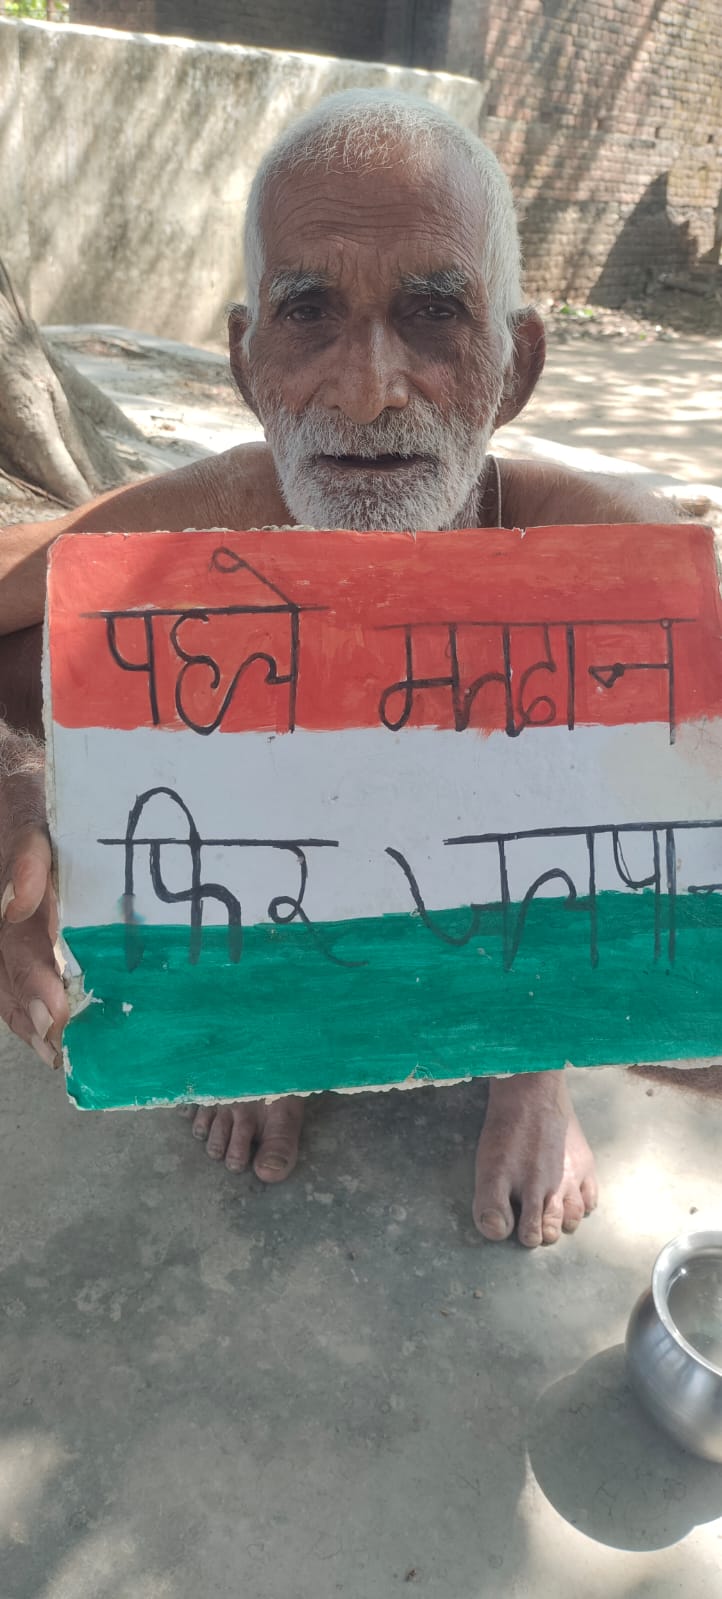 पहले मतदान
फिर जलपा